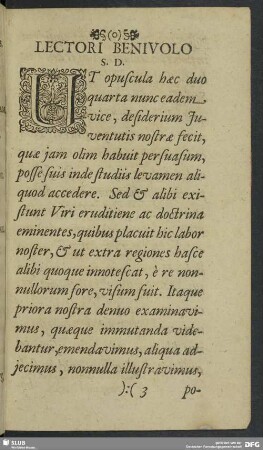 (o)
LECTORI BENIVOLO
S. D.
UT opuscula hæc duo
quarta nunc eadem
vice, desiderium Ju-
ventutis nostræ fecit,
quæ jam olim habuit persuasum,
posse suis inde studiis levamen ali-
quod accedere. Sed & alibi exi-
stunt Viri eruditiene ac doctrina
eminentes, quibus placuit hic labor
noster, & ut extra regiones hasce
alibi quoque innotescat, è re non-
nullorum fore, visum fuit. Itaque
priora nostra denuo examinavi-
mus, quæque immutanda vide-
bantur, emendavimus, aliqua ad-
jecimus, nonnulla illustravimus,
):( 3 po-
SLUB